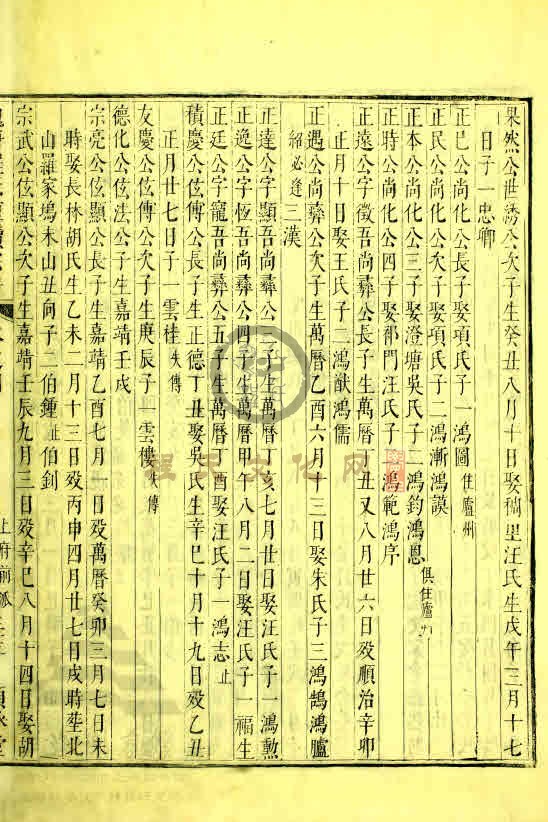 果然公世綉公次子生癸丑八月十日娶稠里汪氏生戊午三月十七
日子一忠卿
正巳公尚化公長子娶項氏子一鴻圖住廬州
正民公尚化公次子娶項氏子二鴻漸鴻謨
正本公尚化公三子娶澄塘吳氏子二鴻鈞鴻恩俱住廬州
正時公尚化公四子娶祁門汪氏子二鴻範鴻序
正遠公字徵吾尚彛公長子生萬曆丁丑又八月廿六日歿順治辛卯
正月十日娶王氏子二鴻猷鴻儒
正遇公尚彛公次子生萬曆乙酉六月十三日娶朱氏子三鴻鵠鴻臚
紹必逢三漢
正達公字顯吾尚彛公三子生萬曆丁亥七月廿日娶汪氏子一鴻勲
正逸公字恆吾尚彛公四子生萬曆甲午八月二日娶汪氏子一福生
正廷公字寵吾尚彛公五子生萬曆丁酉娶汪氏子一鴻志止
積慶公伭傳公長子生正德丁丑娶吳氏生辛巳十月十九日歿乙丑
正月廿七日子一雲桂失傳
友慶公伭傳公次子生庚辰子一雲樓失傳
德化公伭法公子生嘉靖壬戌
宗亮公伭顯公長子生嘉靖乙酉七月一日歿萬曆癸卯三月七日未
時娶長林胡氏生乙未二月十三日歿丙申四月廿七日戌時塟北
山羅家塢未山丑向子二伯鍾止伯釗
宗武公伭顯公次子生嘉靖壬辰九月三日歿辛巳八月十四日娶胡
程氏文化网